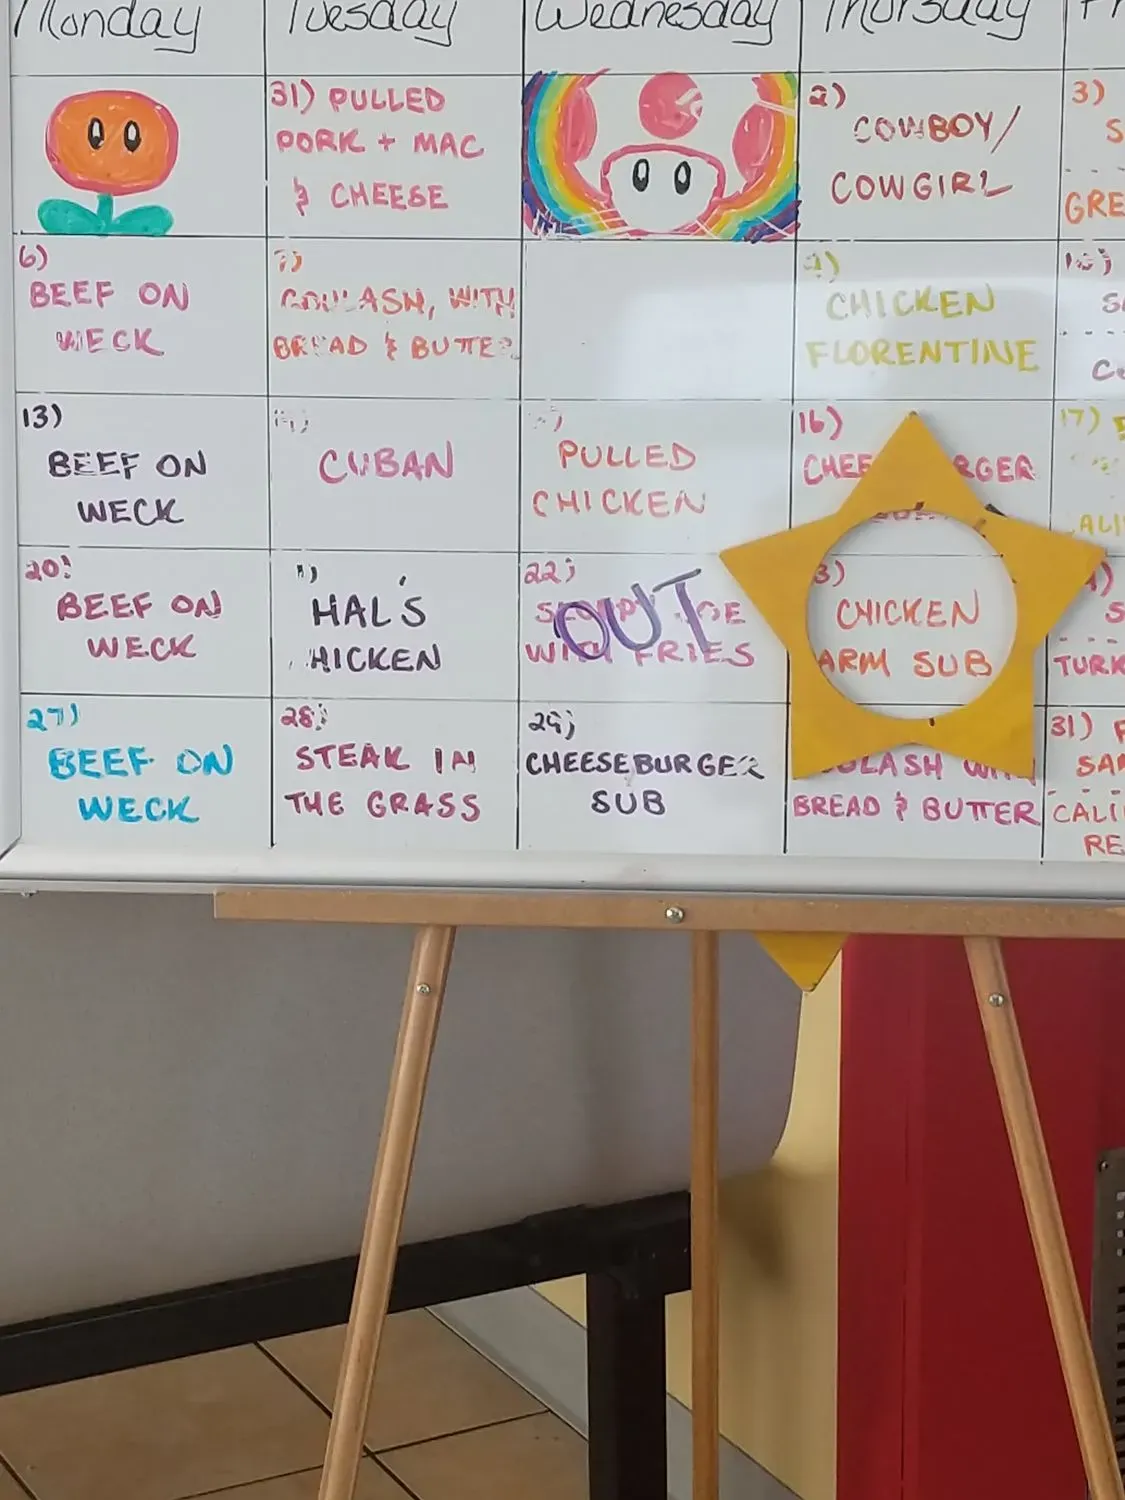 Monday Tuesday Wednesday Thursday
31) PULLED
PORK + MAC
& CHEESE
2)
COWBOY/
COWGIRL
3)
S
GRE
6)
BEEF ON
WECK
7)
GOULASH, WITH
BREAD & BUTTER
9)
CHICKEN
FLORENTINE
10)
13)
BEEF ON
WECK
CUBAN
PULLED
CHICKEN
16)
17)
CALI
20)
BEEF ON
WECK
HAL'S
HICKEN
22)
OUT
WITH FRIES
3)
CHICKEN
ARM SUB
S
TURK
27)
BEEF ON
WECK
28)
STEAK IN
THE GRASS
29)
CHEESEBURGER
SUB
OULASH WITH
BREAD & BUTTER
31)
SAN
CALI
RE